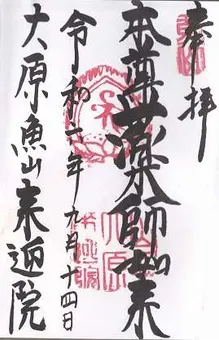 奉拝
本尊薬師如来
令和二年九月十四日
大原魚山来迎院